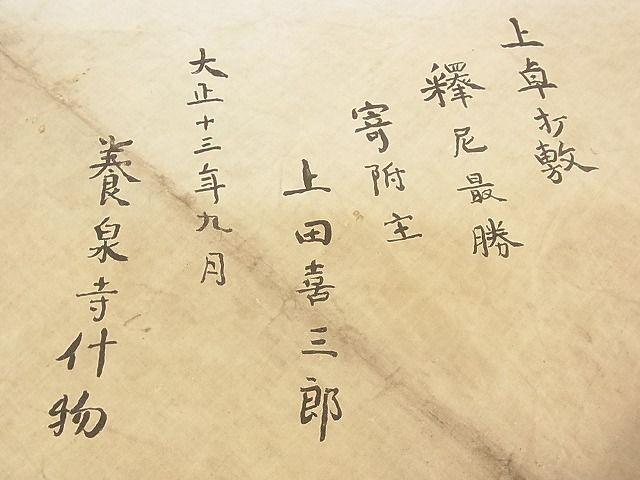 上卓打敷
釋尼最勝
寄附主
上田喜三郎
大正十三年九月
養泉寺什物